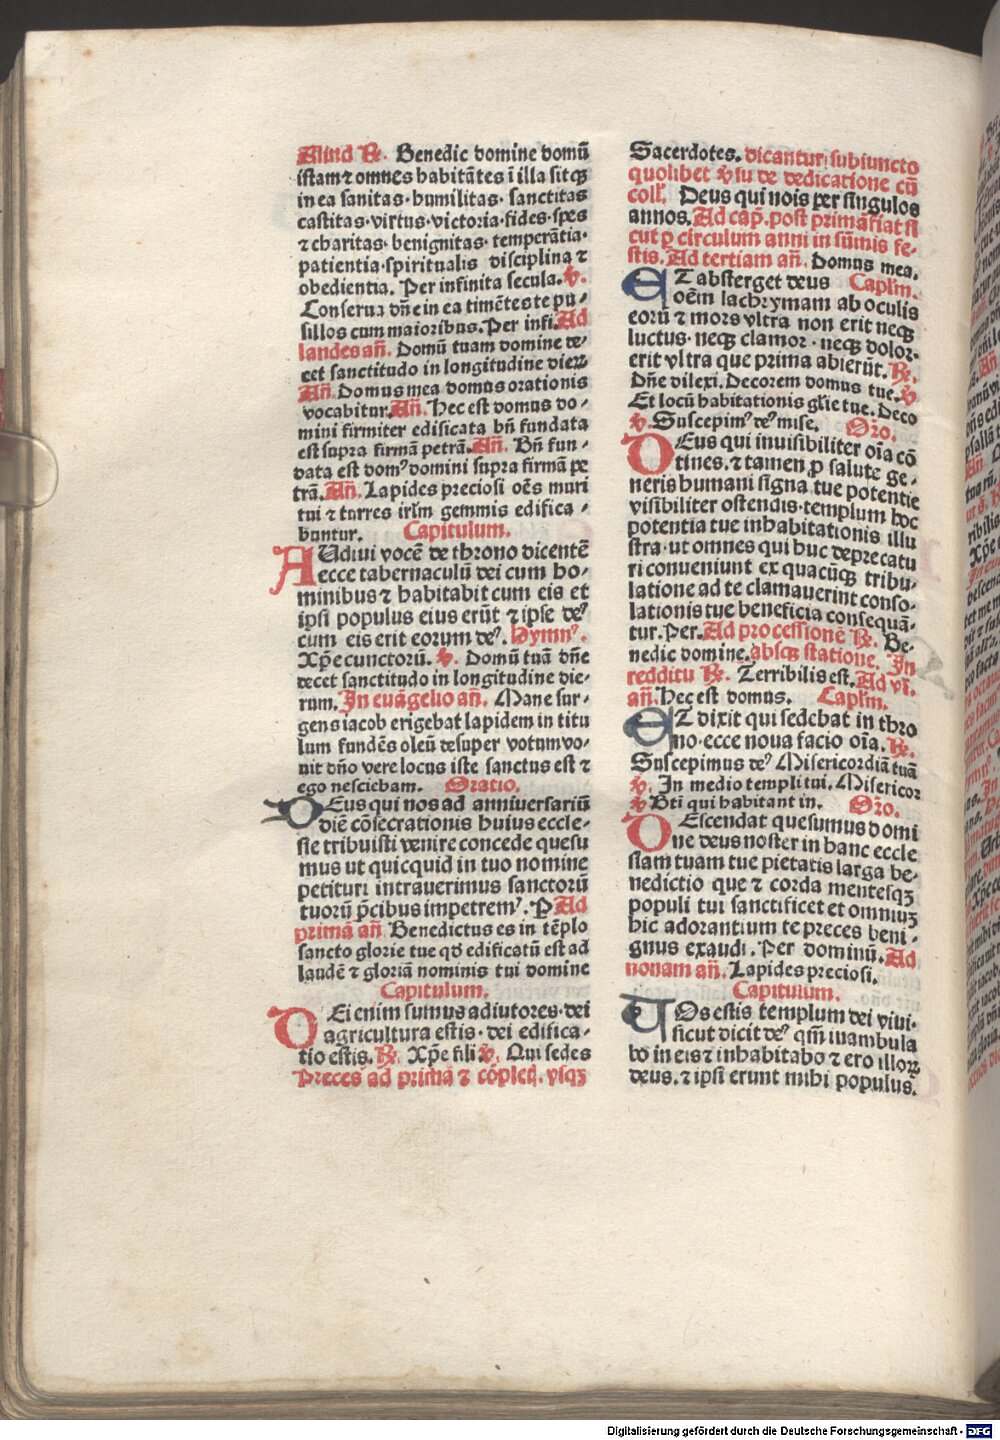 Aliud R. Benedic domine domū
istam ⁊ omnes habitātes ī illa sitqꝫ
in ea sanitas· humilitas· sanctitas
castitas· virtus· victoria· fides· spes
⁊ charitas· benignitas· temperātia·
patientia· spiritualis disciplina ⁊
obedientia. Per infinita secula. v.
Conserua dn̄e in ea timētes te pu⸗
sillos cum maioribus. Per infi. Ad
laudes an̄. Domū tuam domine de⸗
cet sanctitudo in longitudine dieꝝ
An̄. Domus mea domus orationis
vocabitur. An̄. Hec est domus do⸗
mini firmiter edificata bn̄ fundata
est supra firmā petrā. An̄. Bn̄ fun⸗
data est domꝰ domini supra firmā pe
trā. An̄. Lapides preciosi oēs muri
tui ⁊ turres irlm̄ gemmis edifica⸗
buntur. Capitulum.
AUdiui vocē de throno dicentē
ecce tabernaculū dei cum ho⸗
minibus ⁊ habitabit cum eis et
ipsi populus eius erūt ⁊ ipse deꝰ
cum eis erit eorum deꝰ. Hymnꝰ.
Xp̄e cunctorū. v. Domū tuā dn̄e
decet sanctitudo in longitudine die⸗
rum. In euāgelio an̄. Mane sur⸗
gens iacob erigebat lapidem in titu
lum fundēs oleū desuper votum vo⸗
uit dn̄o vere locus iste sanctus est ⁊
ego nesciebam. Oratio.
DEus qui nos ad anniuersariū
diē cōsecrationis huius eccle⸗
sie tribuisti venire concede quesu
mus ut quicquid in tuo nomine
petituri intrauerimus sanctorū
tuorū p̄cibus impetremꝰ. P Ad
primā an̄ Benedictus es in tēplo
sancto glorie tue qd̄ edificatū est ad
laudē ⁊ gloriā nominis tui domine
Capitulum.
DEi enim sumus adiutores· dei
agricultura estis· dei edifica⸗
tio estis. R. Xp̄e fili v. Qui sedes
Preces ad primā ⁊ cōpleṫ. vsqꝫ
Sacerdotes. dicantur subiuncto
quolibet v̄su de dedicatione cū
coll̄. Deus qui nois per singulos
annos. Ad cap̄. post primā fiat si
cut p̲ circulum anni in sūmis fe⸗
stis. Ad tertiam an̄. Domus mea.
ET absterget deus Capl̄m.
oēm lachrymam ab oculis
eorū ⁊ mors vltra non erit neqꝫ
luctus· neqꝫ clamor· neqꝫ dolor·
erit vltra que prima abierūt. R.
Dn̄e dilexi. Decorem domus tue. v
Et locū habitationis gl̄ie tue. Deco
v. Suscepimꝰ deꝰ mise. Or̄o.
DEus qui inuisibiliter oīa cō
tines. ⁊ tamen ꝓ salute ge⸗
neris humani signa tue potentie
visibiliter ostendis· templum hoc
potentia tue inhabitationis illu
stra· ut omnes qui huc deprecatu
ri conueniunt ex quacūqꝫ tribu⸗
latione ad te clamauerint conso⸗
lationis tue beneficia consequā⸗
tur. Per. Ad processionē R. Be⸗
nedic domine. absqꝫ statione. In
redditu R. Terribilis est. Ad vi.
an̄. Hec est domus. Capl̄m.
ET dixit qui sedebat in thro
no· ecce noua facio oīa. R.
Suscepimus deꝰ Misericordiā tuā
v. In medio templi tui. Misericor
v Bt̄i qui habitant in. Or̄o.
DEscendat quesumus domi
ne deus noster in hanc eccle
siam tuam tue pietatis larga be⸗
nedictio que ⁊ corda mentesqꝫ
populi tui sanctificet et omniuꝫ
hic adorantium te preces beni⸗
gnus exaudi. Per dominū. Ad
nonam an̄. Lapides preciosi.
Capitulum.
UOs estis templum dei viui·
sicut dicit deꝰ qm̄ inambula
bo in eis ⁊ inhabitabo ⁊ ero illoꝝ
deus. ⁊ ipsi erunt mihi populus.
Digitalisierung gefördert durch die Deutsche Forschungsgemeinschaft - DFG